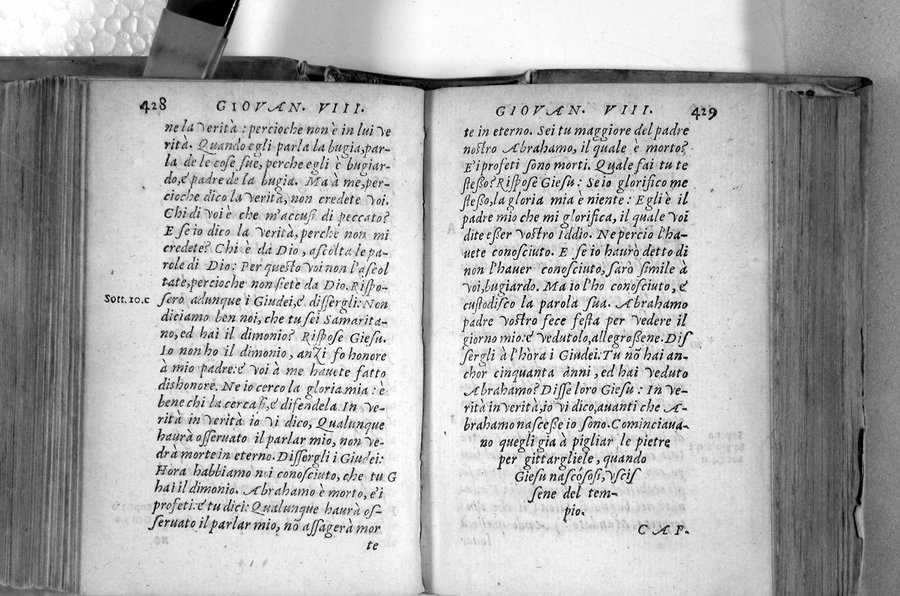 428 GIOVAN. VIII.
ne la verità : percioche non è in lui ve
rità. Quando egli parla la bugia, par-
la de le cose sue, perche egli è bugiar-
do, e padre de la bugia. Ma à me, per-
cioche dico la verità, non credete voi.
Chi di voi è che m'accusi di peccato?
E se io dico la verità, perche non mi
credete? Chi è da Dio, ascolta le pa-
role di Dio: Per questo voi non l'ascol
tate, percioche non siete da Dio. Rispo-
Sott. 10. c
sero adunque i Giudei, e dissergli: Non
diciamo ben noi, che tu sei Samarita-
no, ed hai il dimonio? Rispose Giesu.
Io non ho il dimonio, anzi fo honore
à mio padre: e voi à me havete fatto
dishonore. Ne io cerco la gloria mia : è
bene chi la cerca si, e difendela. In ve-
rità in verità io vi dico, Qualunque
haurà osseruato il parlar mio, non ve-
drà morte in eterno. Dissergli i Giudei:
Hora habbiamo noi conosciuto, che tu G
hai il dimonio. Abrahamo è morto, e i
profeti: e tu dici: Qualunque haurà os-
seruato il parlar mio, nõ assagerà mor
te
GIOVAN. VIII. 429
te in eterno. Sei tu maggiore del padre
nostro Abrahamo, il quale è morto?
E i profeti sono morti. Quale fai tu te
stesso? Rispose Giesu : Se io glorifico me
stesso, la gloria mia è niente : Egli è il
padre mio che mi glorifica, il quale voi
dite esser vostro Iddio. Ne percio l'ha-
uete conosciuto. E se io haurò detto di
non l'hauer conosciuto, sarò simile à
voi, bugiardo. Ma io l'ho conosciuto, e
custodisco la parola sua. Abrahamo
padre vostro fece festa per vedere il
giorno mio: e vedutolo, allegrossene. Dis
sergli à l'hora i Giudei. Tu nõ hai an-
chor cinquanta anni, ed hai veduto
Abrahamo? Disse loro Giesu : In ve-
rità in verità, io vi dico, auanti che A-
brahamo nascesse io sono. Cominciaua-
no quegli già à pigliar le pietre
per gittargliele, quando
Giesu nascososi, vscis
sene del tem-
pio.
CAP.